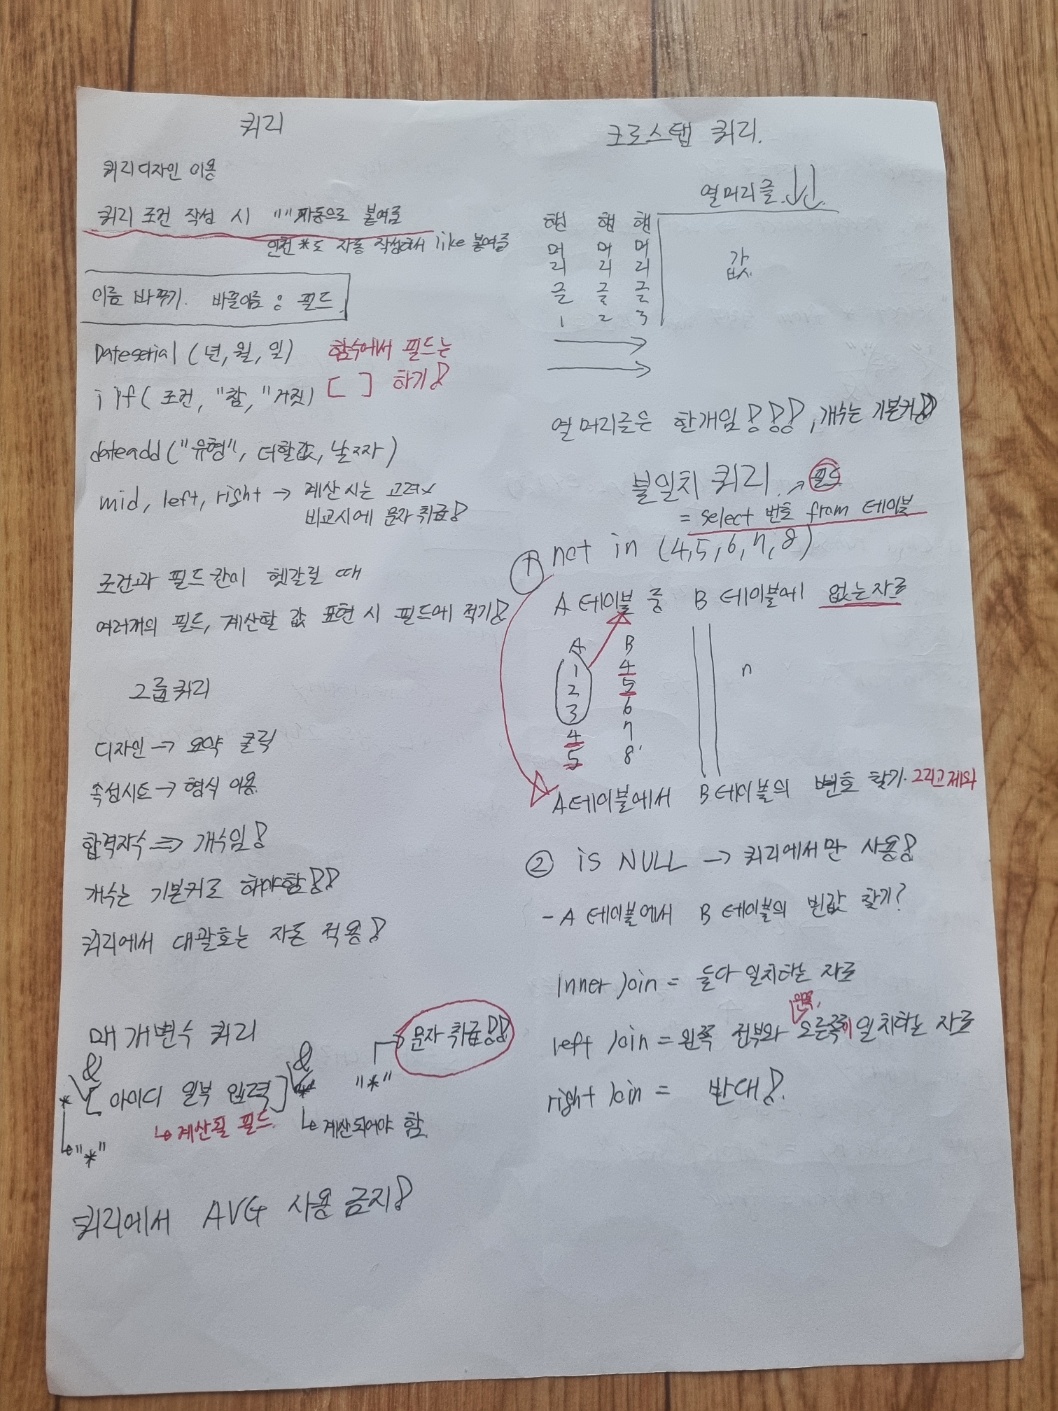 쿼리
쿼리디자인 이용
쿼리 조건 작성 시 "" 자동으로 붙여줌
*도 자동 작성해서 like 붙여줌
이름 바꾸기. 바꿀이름 : 필드
Dateserial (년, 월, 일)
함수에서 필드는
[ ] 하기!
iif( 조건, "참, "거짓)
dateadd("유형", 더할값, 날짜)
mid, left, right → 계산 시는 고려x
비교시에 문자 취급!
조건과 필드란이 헷갈릴 때
여러개의 필드, 계산할 값 표현 시 필드에 적기!
그룹쿼리
디자인 → 요약 클릭
속성시트 → 형식 이용
합격자수 => 개수임!
개수는 기본키로 해야함!!
쿼리에서 대괄호는 자동 적용!
매개변수 쿼리
문자 취급!!
& &
"*"
* [ 아이디 일부 입력 ] *
↳ 계산될 필드
↳ 계산되어야 함
↳ "*"
쿼리에서 AVG 사용 금지!
크로스탭 쿼리.
열머리글
행머리글 1
행머리글 2
행머리글 3
값
열 머리글은 한개임!!!, 개수는 기본키!!
불일치 쿼리.
→ 필드
= select 번호 from 테이블
① not in (4,5,6,7,8)
A 테이블 중 B 테이블에 없는자료
A B
1 4
2 5
3 6
4 7
5 8
n
A테이블에서 B테이블의 번호 찾기. 그리고 제외
② is NULL → 쿼리에서만 사용!
- A 테이블에서 B 테이블의 빈값 찾기?
inner join = 둘다 일치하는 자료
left join = 왼쪽 전부와 오른쪽이 일치하는 자료
right join = 반대!